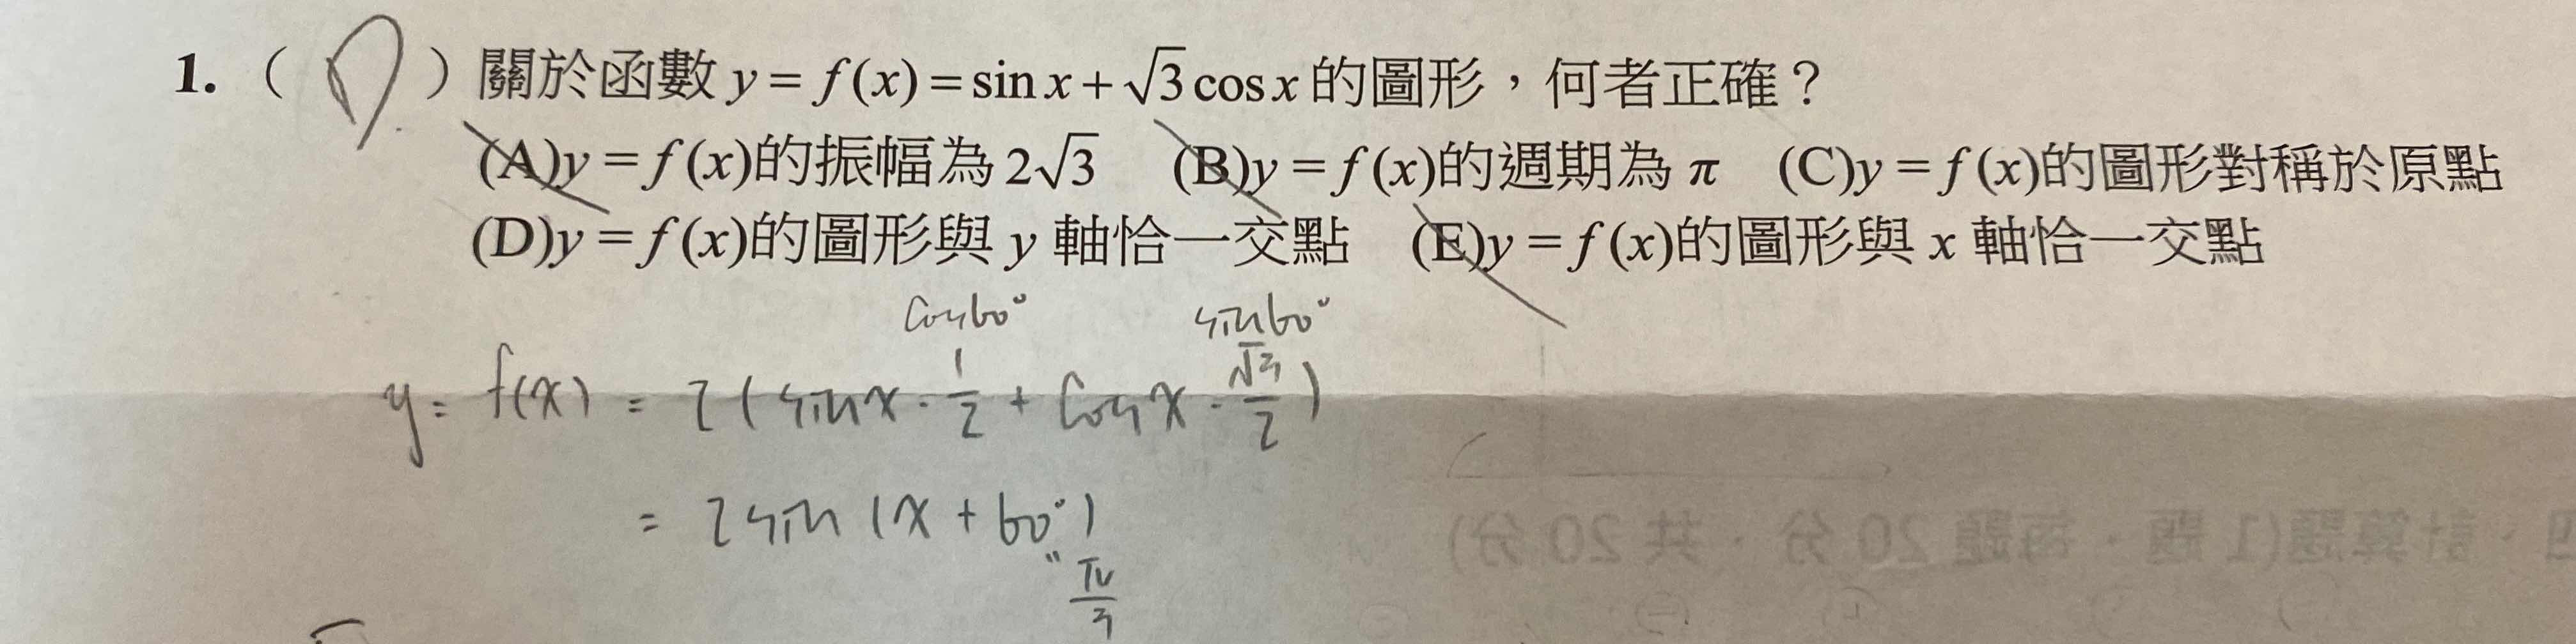 1. ( D ) 關於函數 y = f(x) = sin x + √3 cos x 的圖形，何者正確？
(A)y = f(x)的振幅為 2√3 (B)y = f(x)的週期為 π (C)y = f(x)的圖形對稱於原點
(D)y = f(x)的圖形與 y 軸恰一交點 (E)y = f(x)的圖形與 x 軸恰一交點
cos60° sin60°
y = f(x) = 2(sin x · 1/2 + cos x · √3/2)
= 2 sin(x + 60°)
" π/3
、計算題(1 題．每題 20 分．共 20 分)